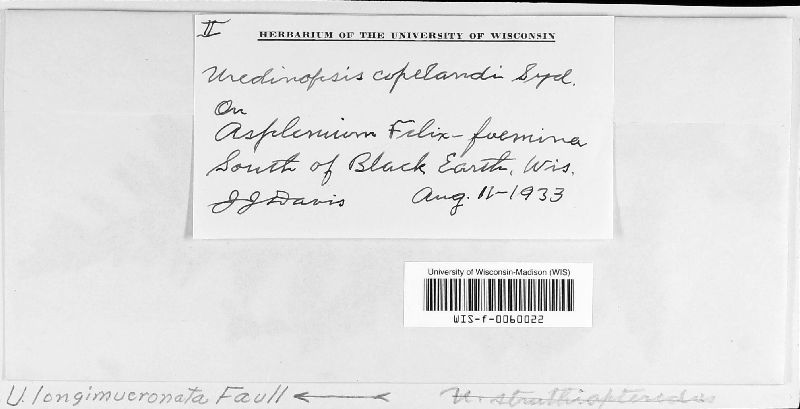 II
HERBARIUM OF THE UNIVERSITY OF WISCONSIN
Uredinopsis copelandi Syd.
On
Asplenium Felix-foemina
South of Black Earth, Wis.
J J Davis Aug. 11-1933
University of Wisconsin-Madison (WIS)
WIS-f-0060022
U. longimucronata Faull ← U. struthiopteridis